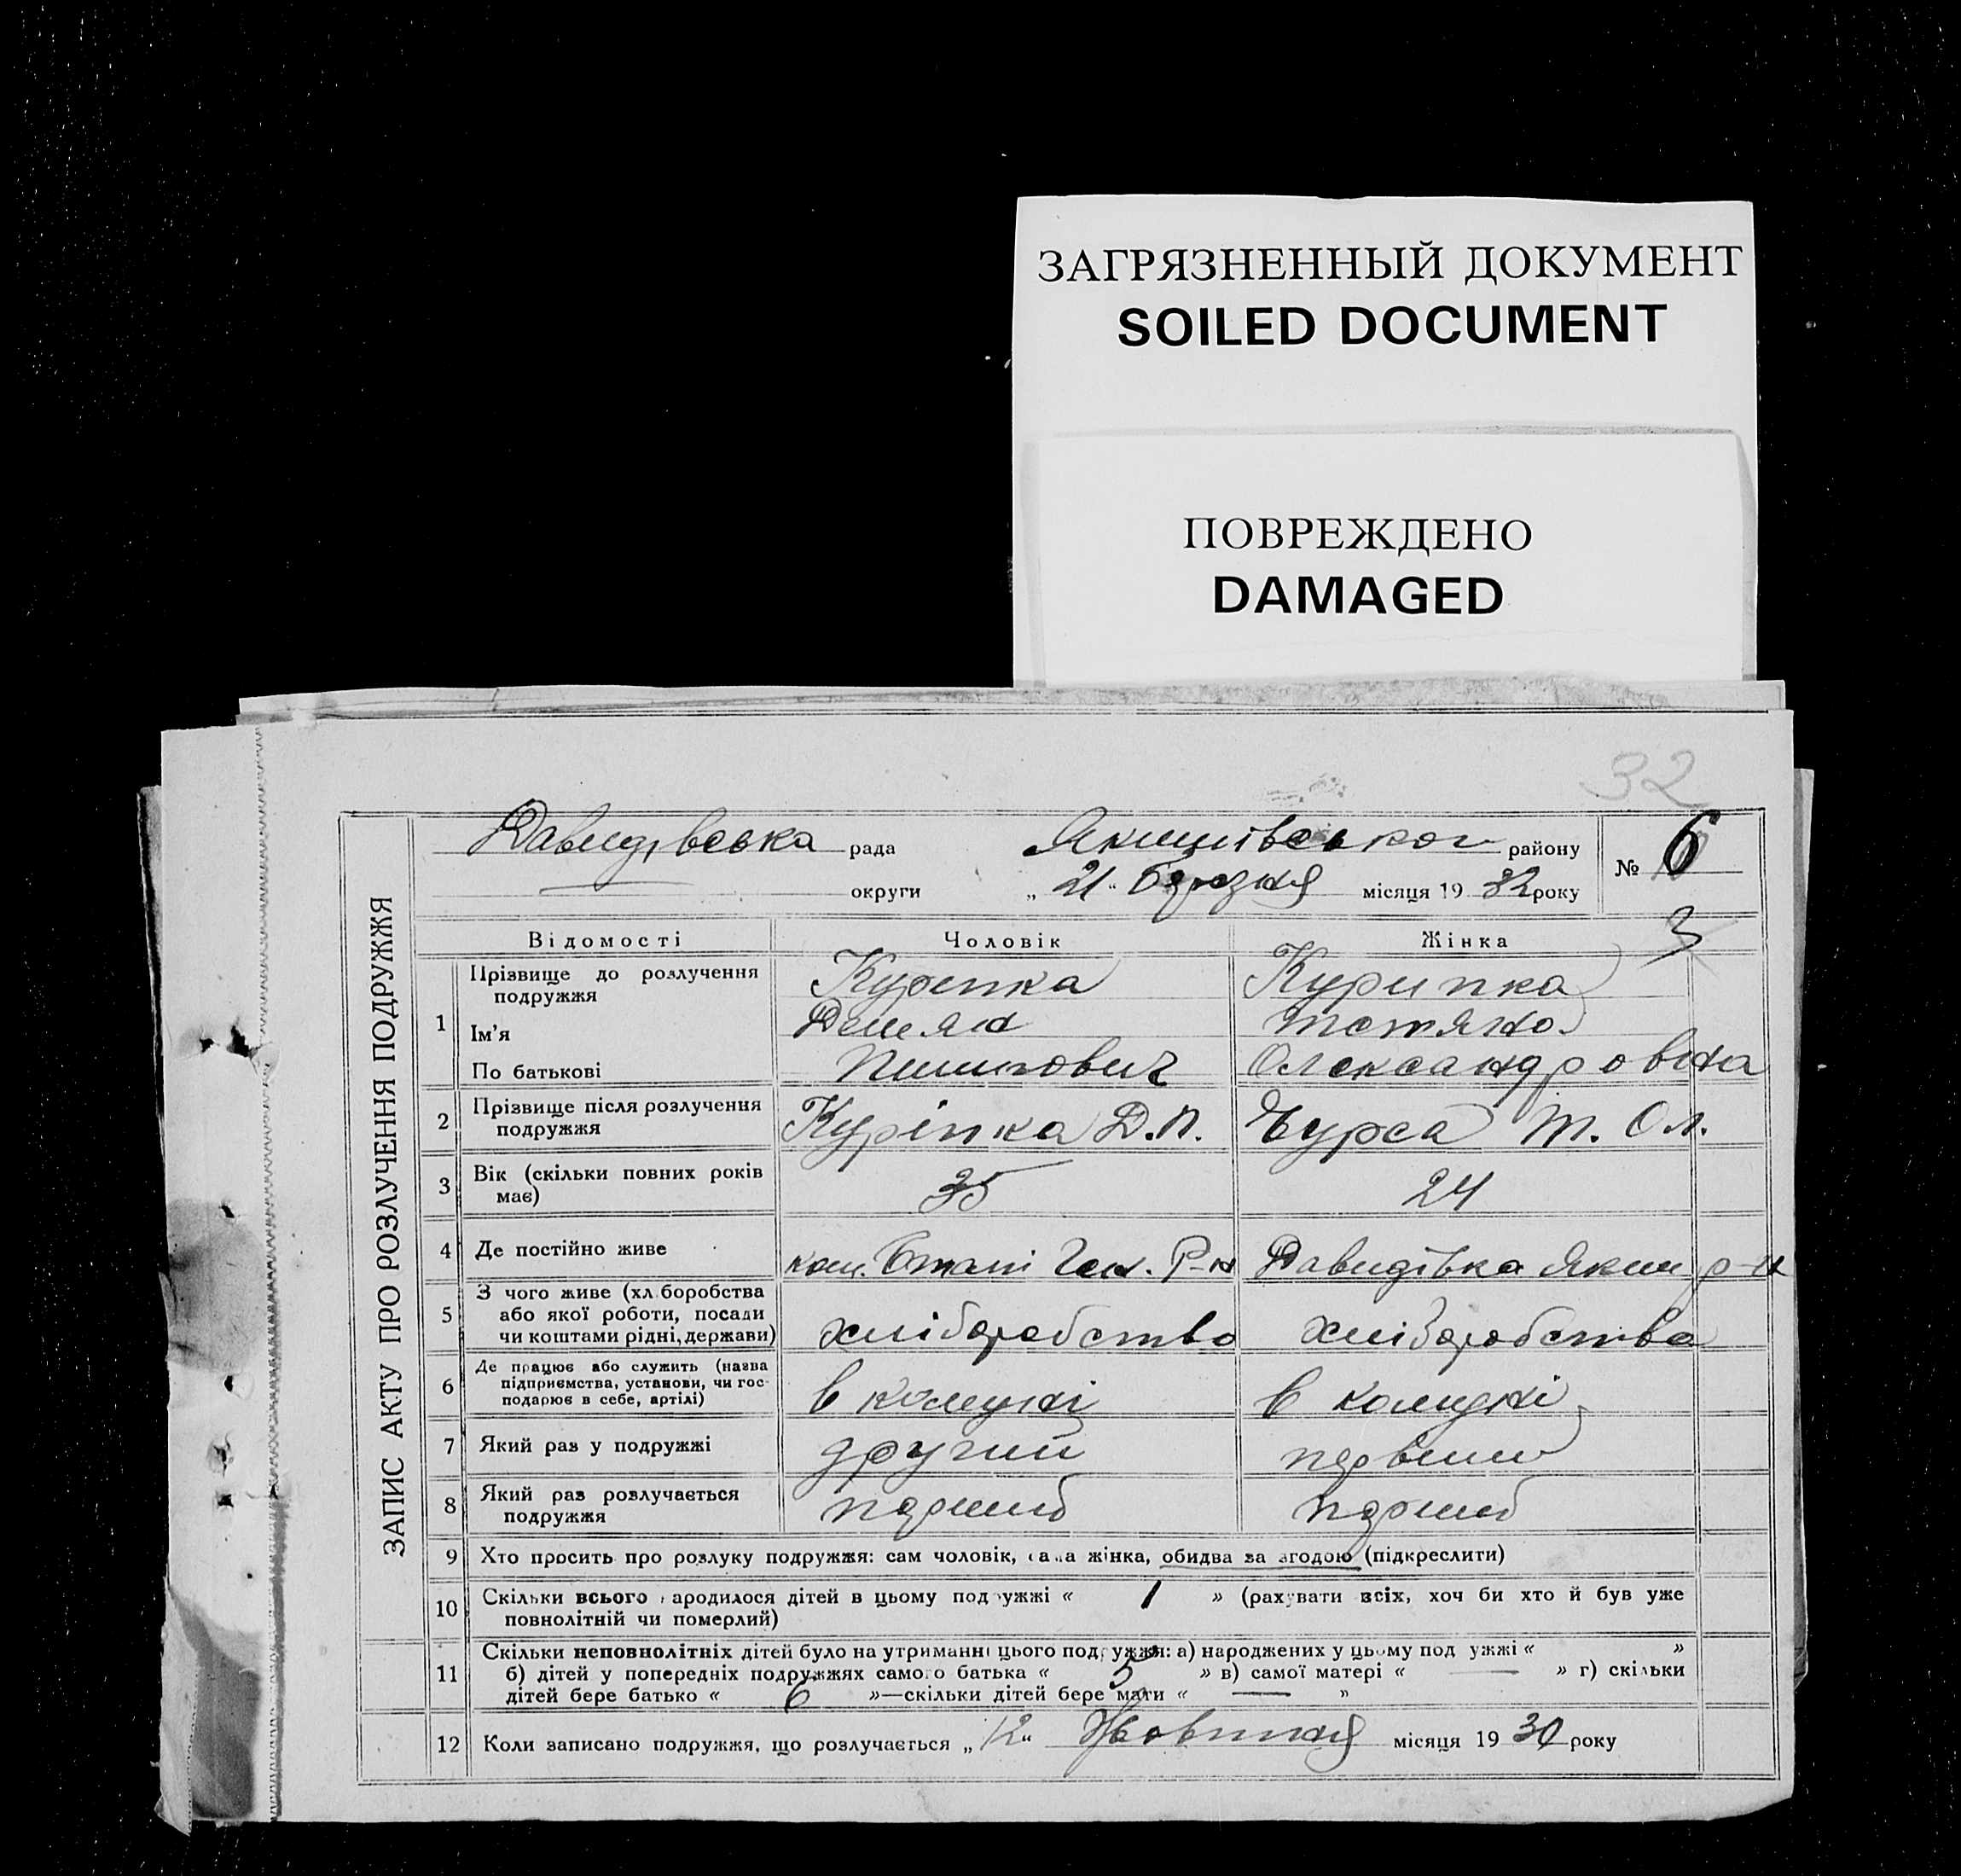 ЗАГРЯЗНЕННЫЙ ДОКУМЕНТ
SOILED DOCUMENT
ПОВРЕЖДЕНО
DAMAGED
32
ЗАПИС АКТУ ПРО РОЗЛУЧЕННЯ ПОДРУЖЖЯ
Давидівська рада району № 6
округи „ 21 “ березня місяця 19 32 року
3
Відомості Чоловік Жінка
1 Прізвище до розлучення подружжя Курипка
Ім'я Демян
По батькові Олександровна
2 Прізвище після розлучення подружжя Куріпка Д.П. Чурса Т. Ол.
3 Вік (скільки повних років має) 35 24
4 Де постійно живе Ген. Р-н Давидівка Яким р-н
5 З чого живе (хліборобства або якої роботи, посади чи коштами рідні, держави) хліборобство хліборобства
6 Де працює або служить (назва підприємства, установи, чи господарює в себе, артілі) в комуні в комуні
7 Який раз у подружжі другий
8 Який раз розлучається подружжя
9 Хто просить про розлуку подружжя: сам чоловік, сама жінка, обидва за згодою (підкреслити)
10 Скільки всього народилося дітей в цьому подружжі « 1 » (рахувати всіх, хоч би хто й був уже
повнолітній чи померлий)
11 Скільки неповнолітніх дітей було на утриманні цього подружжя: а) народжених у цьому подружжі « »
б) дітей у попередніх подружжях самого батька « 5 » в) самої матері « — » г) скільки
дітей бере батько « 6 »—скільки дітей бере мати « — »
12 Коли записано подружжя, що розлучається „ 12 “ Жовтня місяця 19 30 року